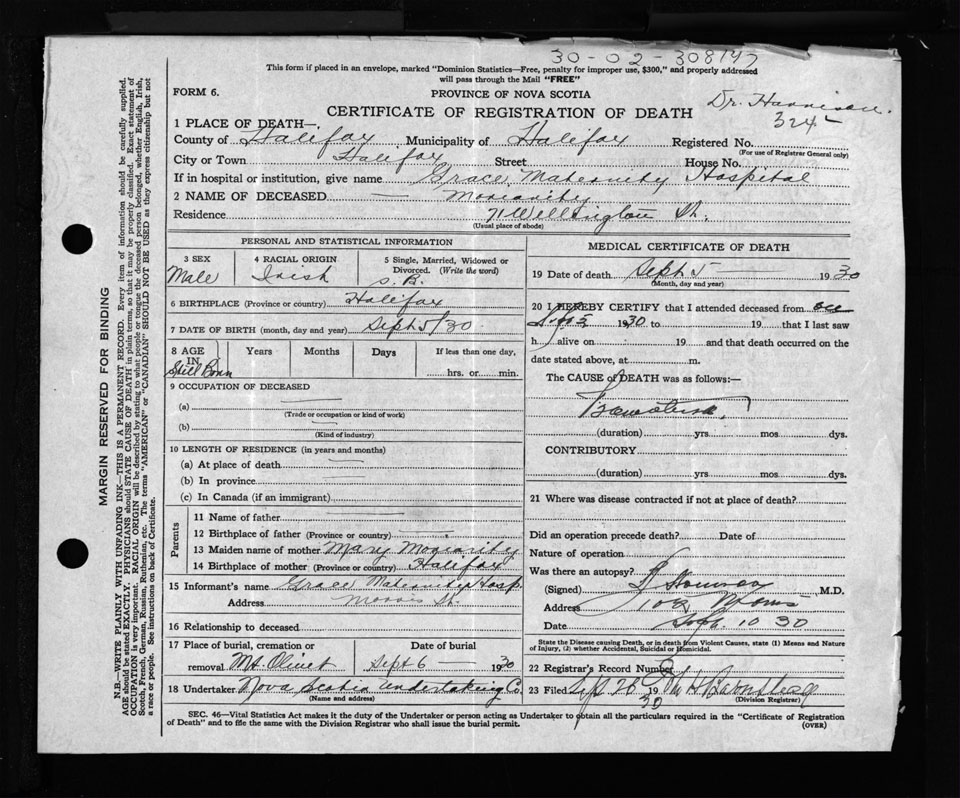 30-02-308147
This form if placed in an envelope, marked "Dominion Statistics—Free, penalty for improper use, $300," and properly addressed
will pass through the Mail "FREE"
FORM 6.
PROVINCE OF NOVA SCOTIA
CERTIFICATE OF REGISTRATION OF DEATH
Dr. Harrison.
324-
1 PLACE OF DEATH—
County of Halifax Municipality of Halifax Registered No.
(For use of Registrar General only)
City or Town Halifax Street House No.
If in hospital or institution, give name Grace Maternity Hospital
2 NAME OF DECEASED — Moriarity
Residence 71 Wellington St.
(Usual place of abode)
PERSONAL AND STATISTICAL INFORMATION
3 SEX Male
4 RACIAL ORIGIN Irish
5 Single, Married, Widowed or Divorced. (Write the word) S. B.
6 BIRTHPLACE (Province or country) Halifax
7 DATE OF BIRTH (month, day and year) Sept 5/30
8 AGE IN Years Months Days If less than one day,
Still Born hrs. or min.
9 OCCUPATION OF DECEASED
(a) —
(Trade or occupation or kind of work)
(b) —
(Kind of industry)
10 LENGTH OF RESIDENCE (in years and months)
(a) At place of death —
(b) In province —
(c) In Canada (if an immigrant)
Parents
11 Name of father —
12 Birthplace of father (Province or country) —
13 Maiden name of mother Mary Moriarity
14 Birthplace of mother (Province or country) Halifax
15 Informant's name Grace Maternity Hosp
Address Morris St.
16 Relationship to deceased
17 Place of burial, cremation or Date of burial
removal Mt. Olivet Sept 6 — 1930
18 Undertaker Nova Scotia Undertaking Co.
(Name and address)
MEDICAL CERTIFICATE OF DEATH
19 Date of death Sept 5 — 1930
(Month, day and year)
20 I HEREBY CERTIFY that I attended deceased from
1930 to 19 that I last saw
h alive on 19 and that death occurred on the
date stated above, at m.
The CAUSE of DEATH was as follows:—
(duration) yrs mos dys.
CONTRIBUTORY
(duration) yrs mos dys.
21 Where was disease contracted if not at place of death?
Did an operation precede death? Date of
Nature of operation
Was there an autopsy?
(Signed) M.D.
Address Morris
Date Sept. 10 30
State the Disease causing Death, or in death from Violent Causes, state (1) Means and Nature
of Injury, (2) whether Accidental, Suicidal or Homicidal.
22 Registrar's Record Number
23 Filed 26 1930
(Division Registrar)
SEC. 46—Vital Statistics Act makes it the duty of the Undertaker or person acting as Undertaker to obtain all the particulars required in the "Certificate of Registration
of Death" and to file the same with the Division Registrar who shall issue the burial permit.
(OVER)
MARGIN RESERVED FOR BINDING
N.B.—WRITE PLAINLY WITH UNFADING INK—THIS IS A PERMANENT RECORD. Every item of information should be carefully supplied.
AGE should be stated EXACTLY. PHYSICIANS should STATE CAUSE OF DEATH in plain terms, so that it may be properly classified. Exact statement of
OCCUPATION is very important. RACIAL ORIGIN will be described by stating to what people or tongue the deceased person belonged, whether English, Irish,
Scotch, French, German, Russian, Ruthenian, etc. The terms "AMERICAN" or "CANADIAN" SHOULD NOT BE USED as they express citizenship but not
a race or people. See instructions on back of Certificate.